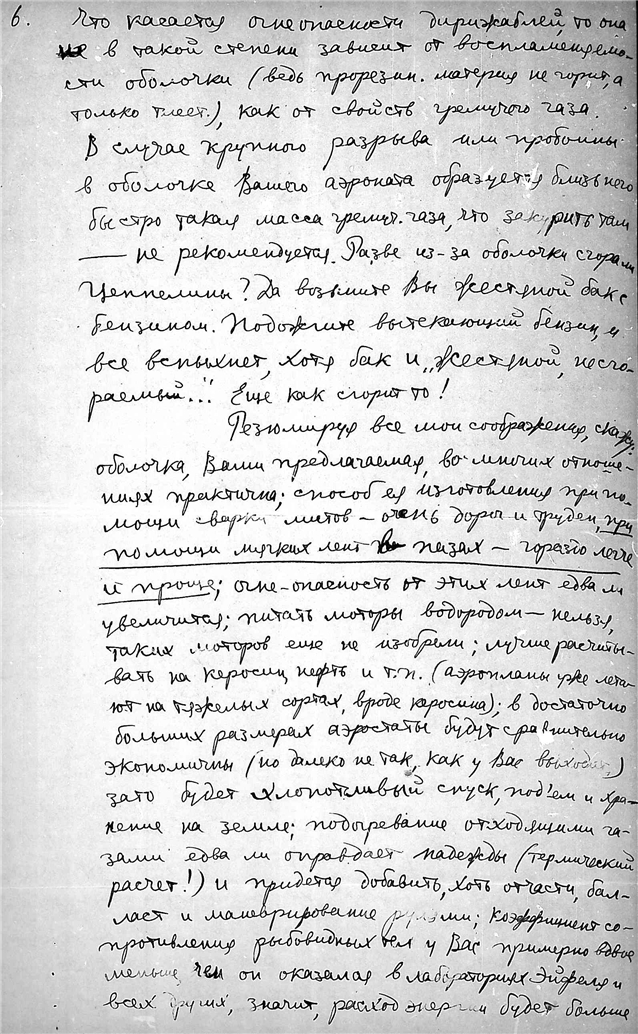 6. Что касается огнеопасности дирижаблей, то она
не в такой степени зависит от воспламеняемо-
сти оболочки (ведь прорезин. материя не горит, а
только тлеет.), как от свойств гремучего газа.
В случае крупного разрыва или пробоины
в оболочке Вашего аэроната образуется близь него
быстро такая масса гремуч. газа, что закурить там
— не рекомендуется. Разве из-за оболочки сгорали
Цеппелины? Да возьмите Вы жестяной бак с
бензином. Подожгите вытекающий бензин, и
все вспыхнет, хотя бак и „жестяной, несго-
раемый..." Еще как сгорит то!
Резюмируя все мои соображения, скажу:
оболочка, Вами предлагаемая, во многих отноше-
ниях практична; способ ея изготовления при по-
мощи сварки листов — очень дорог и труден, при
помощи мягких лент в пазах — гораздо легче
и проще; огне-опасность от этих лент едва ли
увеличится; питать моторы водородом — нельзя,
таких моторов еще не изобрели; лучше расчиты-
вать на керосин, нефть и т.п. (аэропланы уже лета-
ют на тяжелых сортах, вроде керосина); в достаточно
больших размерах аэростаты будут сравнительно
экономичны (но далеко не так, как у Вас выходит,)
зато будет хлопотливый спуск, под'ем и хра-
нение на земле; подогревание отходящими га-
зами едва ли оправдает надежды (термический
расчет!) и придется добавить, хоть отчасти, бал-
ласт и маневрирование рулями; коэффициент со-
противления рыбовидных тел у Вас примерно вдвое
меньше, чем он оказался в лабораториях Эйфеля и
всех других, значит, расход энергии будет больше